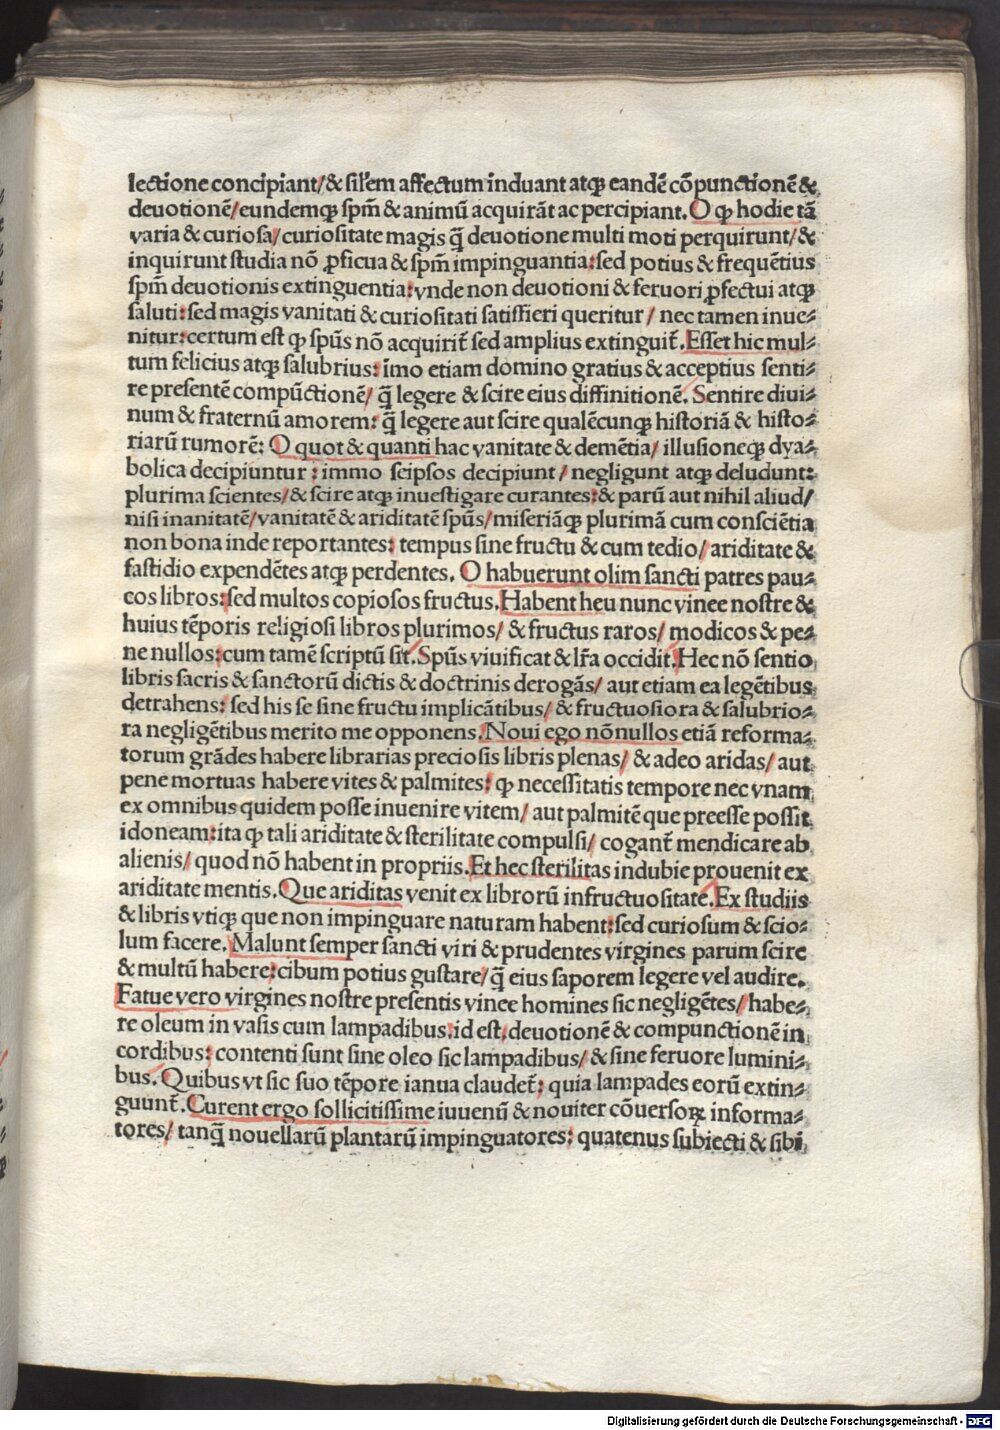 lectione concipiant/& sil'em affectum induant atqꝫ eandē cōpunctionē &
deuotionē/eundemqꝫ spm̄ & animū acquirāt ac percipiant. O ꝙ hodie tā
varia & curiosa/curiositate magis q̄ deuotione multi moti perquirunt/&
inquirunt studia nō ꝓficua & spm̄ impinguantia: sed potius & frequētius
spm̄ deuotionis extinguentia: vnde non deuotioni & feruori ꝓfectui atqꝫ
saluti: sed magis vanitati & curiositati satisfieri queritur/ nec tamen inue⸗
nitur: certum est ꝙ spūs nō acquirit̄ sed amplius extinguit̄. Esset hic mul⸗
tum felicius atqꝫ salubrius: īmo etiam domino gratius & acceptius senti⸗
re presentē compūctionē/ q̄ legere & scire eius diffinitionē. Sentire diui⸗
num & fraternū amorem: q̄ legere aut scire qualēcunqꝫ historiā & histo⸗
riarū rumorē: O quot & quanti hac vanitate & demētia/ illusioneqꝫ dya⸗
bolica decipiuntur: immo seipsos decipiunt/ negligunt atqꝫ deludunt:
plurima scientes/& scire atqꝫ inuestigare curantes: & parū aut nihil aliud/
nisi inanitatē/vanitatē & ariditatē spūs/miseriāqꝫ plurimā cum consciētia
non bona inde reportantes: tempus sine fructu & cum tedio/ ariditate &
fastidio expendētes atqꝫ perdentes. O habuerunt olim sancti patres pau⸗
cos libros: sed multos copiosos fructus. Habent heu nunc vinee nostre &
huius tēporis religiosi libros plurimos/ & fructus raros/ modicos & pe⸗
ne nullos: cum tamē scriptū sit. Spūs viuificat & lr̄a occidit. Hec nō sentio
libris sacris & sanctorū dictis & doctrinis derogās/ aut etiam ea legētibus
detrahens: sed his se sine fructu implicātibus/ & fructuosiora & salubrio⸗
ra negligētibus merito me opponens. Noui ego nōnullos etiā reforma⸗
torum grādes habere librarias preciosis libris plenas/ & adeo aridas/ aut
pene mortuas habere vites & palmites: ꝙ necessitatis tempore nec vnam
ex omnibus quidem posse inuenire vitem/ aut palmitē que preesse possit
idoneam: ita ꝙ tali ariditate & sterilitate compulsi/ cogant̄ mendicare ab
alienis/ quod nō habent in propriis. Et hec sterilitas indubie prouenit ex
ariditate mentis. Que ariditas venit ex librorū infructuositate. Ex studiis
& libris vtiqꝫ que non impinguare naturam habent: sed curiosum & scio⸗
lum facere. Malunt semper sancti viri & prudentes virgines parum scire
& multū habere: cibum potius gustare/ q̄ eius saporem legere vel audire.
Fatue vero virgines nostre presentis vinee homines sic negligētes/ habe⸗
re oleum in vasis cum lampadibus: id est, deuotionē & compunctionē in
cordibus: contenti sunt sine oleo sic lampadibus/ & sine feruore lumini⸗
bus. Quibus vt sic suo tēpore ianua claudet̄: quia lampades eorū extin⸗
guunt̄. Curent ergo sollicitissime iuuenū & nouiter cōuersoꝝ informa⸗
tores/ tanq̄ nouellarū plantarū impinguatores: quatenus subiecti & sibi
Digitalisierung gefördert durch die Deutsche Forschungsgemeinschaft - DFG